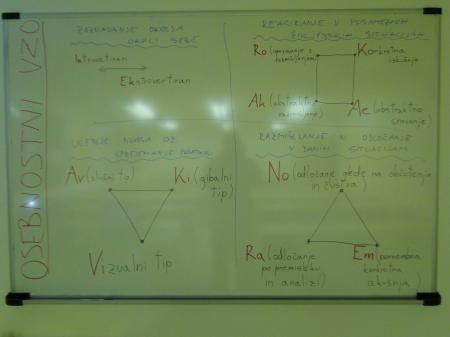 OSEBNOSTNI VZO
ZAZNAVANJE OKOLJA
OKOLI SEBE
Introvertiran
Ekstrovertiran
REAGIRANJE V POSAMEZNIH
ŽIVLJENJSKIH SITUACIJAH
Ro (opazovanje z
razmišljanjem)
Konkretna
izkušnja
Ak (abstraktno
razmišljanje)
Ae (abstraktno
snovanje)
UČENJE NOVEGA OZ.
SPREJEMANJE PODATKOV
Av (slušni tip)
Ki (gibalni
tip)
Vizualni tip
RAZMIŠLJANJE IN ODLOČANJE
V DANIH SITUACIJAH
No (odločanje glede na občutenja
in čustva)
Ra (odločanje
po premisleku
in analizi)
Em (pomembna
konkretna
izkušnja)